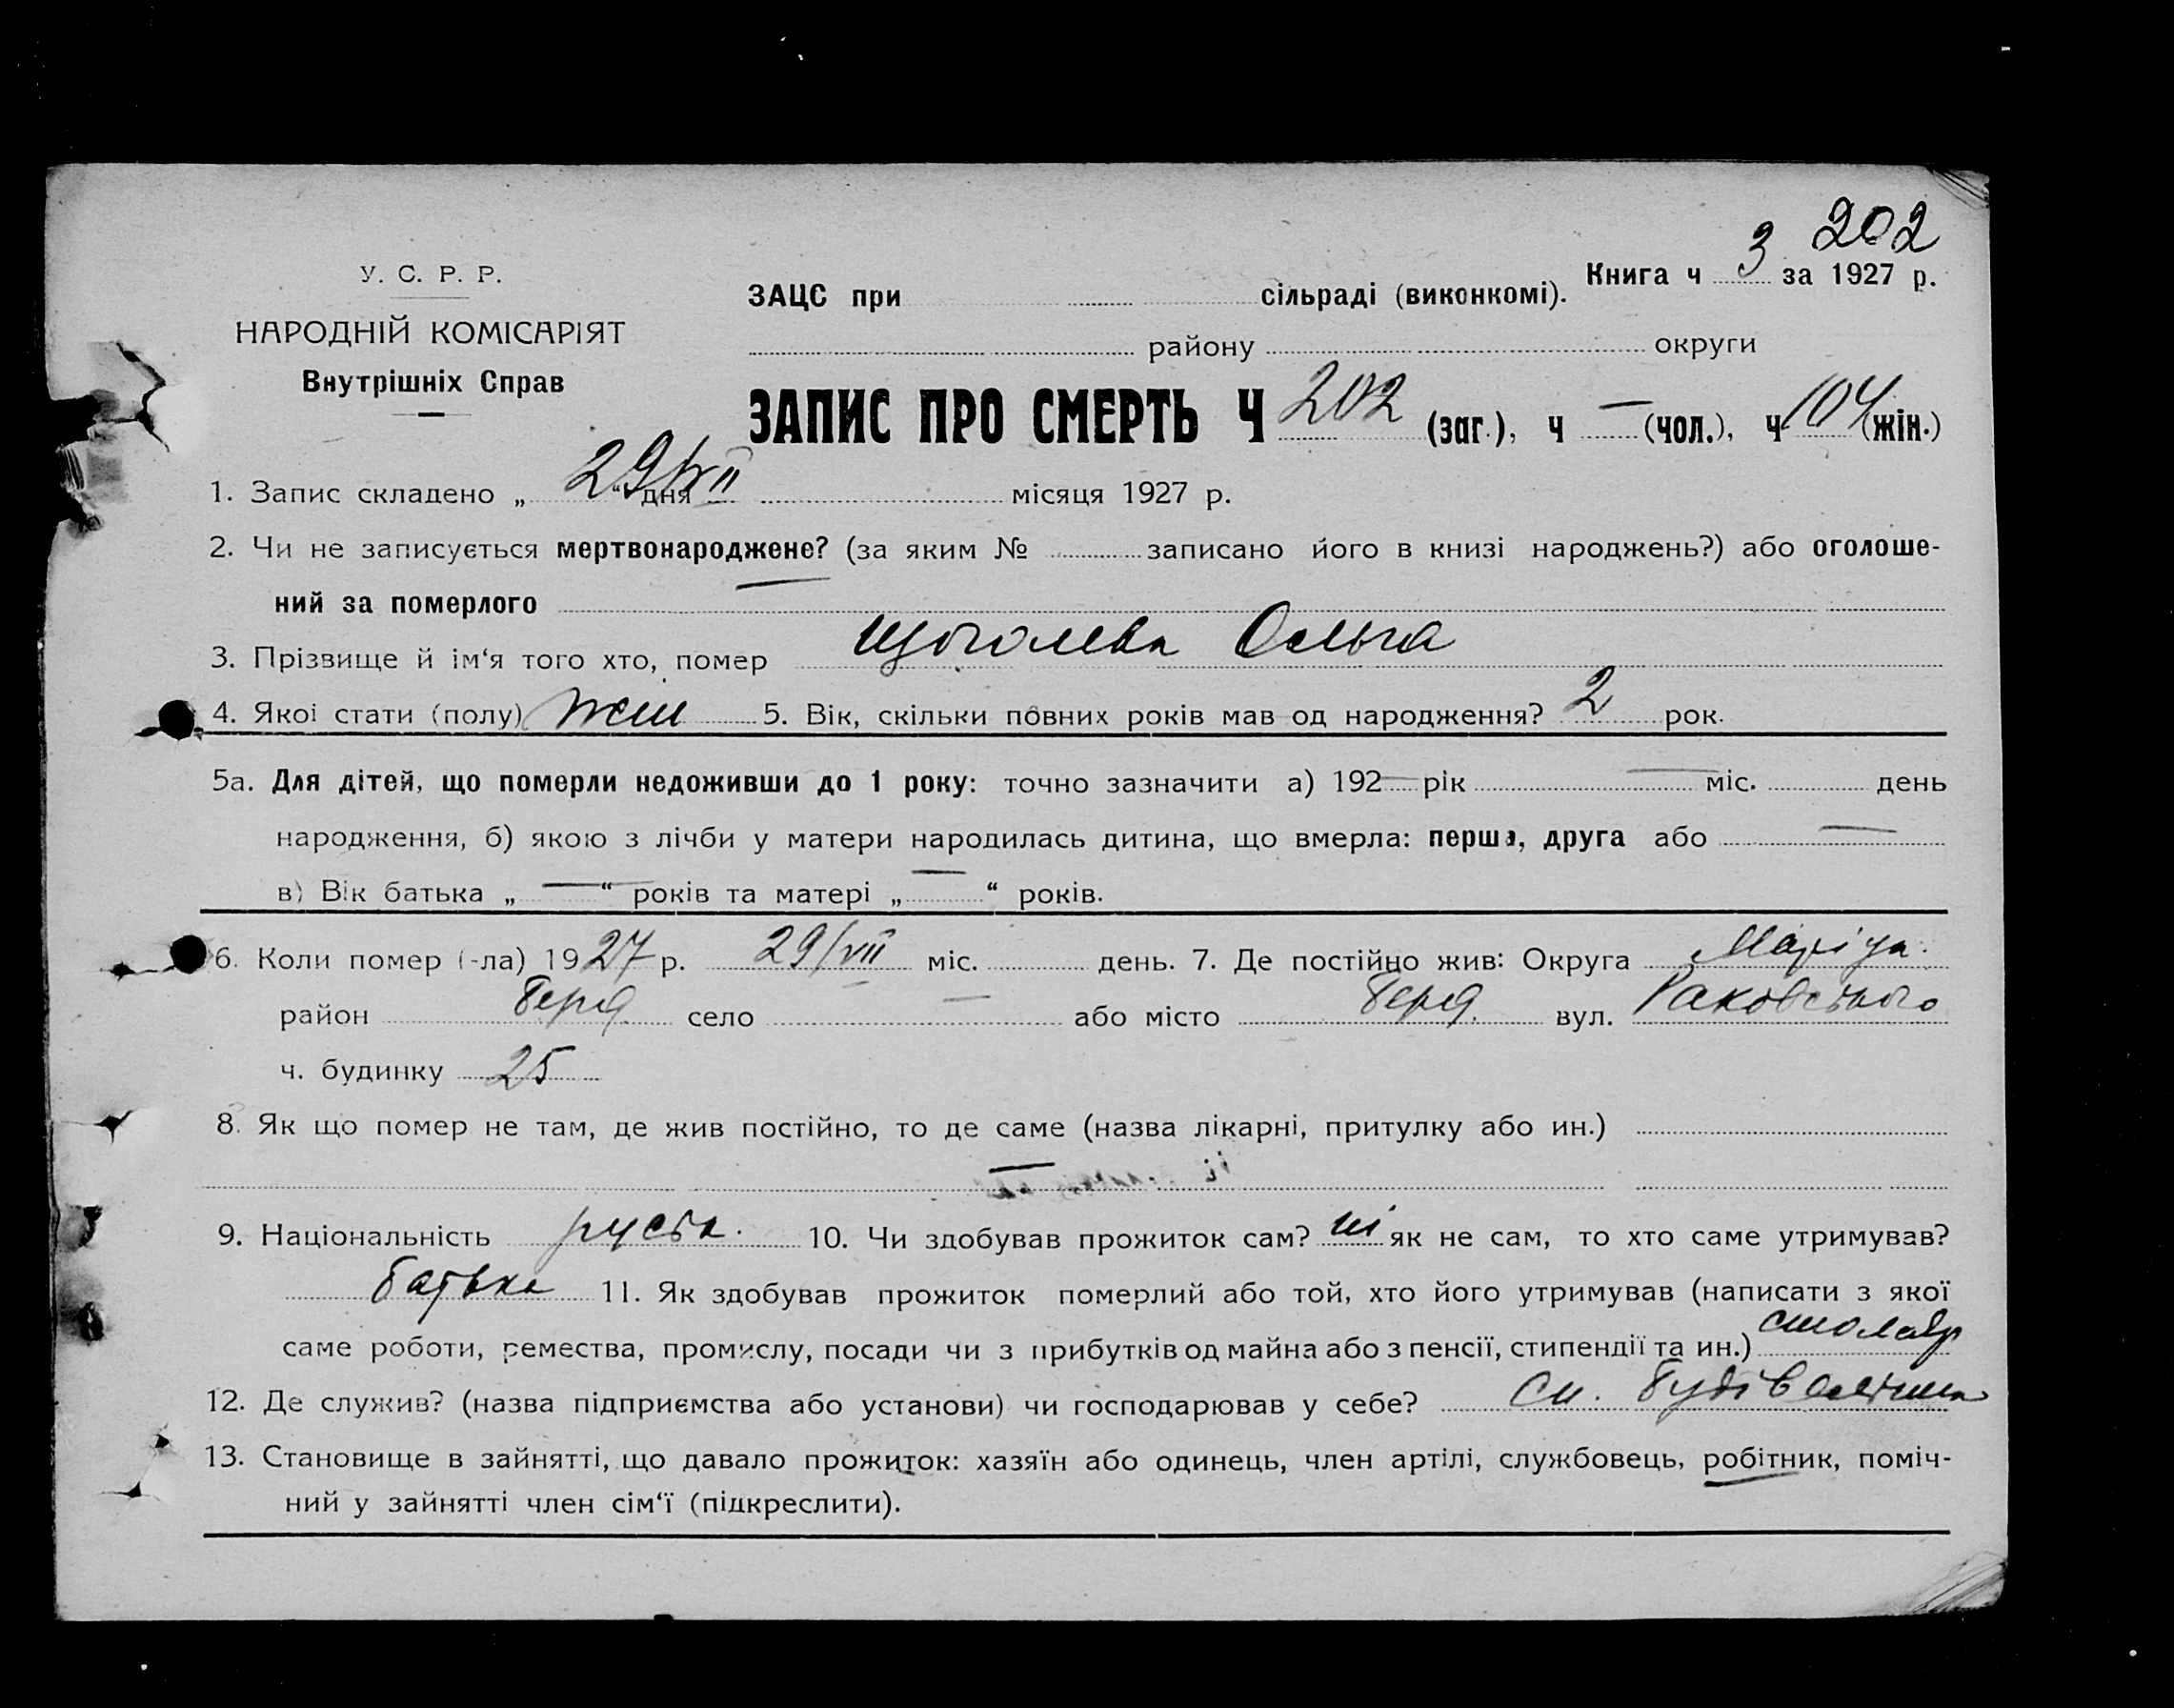 202
У. С. Р. Р.
НАРОДНІЙ КОМІСАРІЯТ
Внутрішніх Справ
Книга ч 3 за 1927 р.
ЗАЦС при сільраді (виконкомі).
району округи
ЗАПИС ПРО СМЕРТЬ Ч 202 (заг.), ч — (чол.), ч 104 (жін.)
1. Запис складено „ 29/VII “ дня місяця 1927 р.
2. Чи не записується мертвонароджене? (за яким № записано його в книзі народжень?) або оголоше-
ний за померлого —
3. Прізвище й ім‘я того хто, помер Щоголева Ольга
4. Якої стати (полу) жін 5. Вік, скільки повних років мав од народження? 2 рок.
5а. Для дітей, що померли недоживши до 1 року: точно зазначити а) 192— рік — міс. день
народження, б) якою з лічби у матери народилась дитина, що вмерла: перша, друга або —
в) Вік батька „ — “ років та матері „ — “ років.
6. Коли помер (-ла) 1927 р. 29/VII міс. день. 7. Де постійно жив: Округа Маріуп.
район Берд. село — або місто Берд. вул. Раковського
ч. будинку 25
8. Як що помер не там, де жив постійно, то де саме (назва лікарні, притулку або ин.)
—
9. Національність руськ. 10. Чи здобував прожиток сам? ні як не сам, то хто саме утримував?
батько 11. Як здобував прожиток померлий або той, хто його утримував (написати з якої
саме роботи, ремества, промислу, посади чи з прибутків од майна або з пенсії, стипендії та ин.) столяр
12. Де служив? (назва підприємства або установи) чи господарював у себе?
13. Становище в зайнятті, що давало прожиток: хазяїн або одинець, член артілі, службовець, робітник, поміч-
ний у зайнятті член сім‘ї (підкреслити).